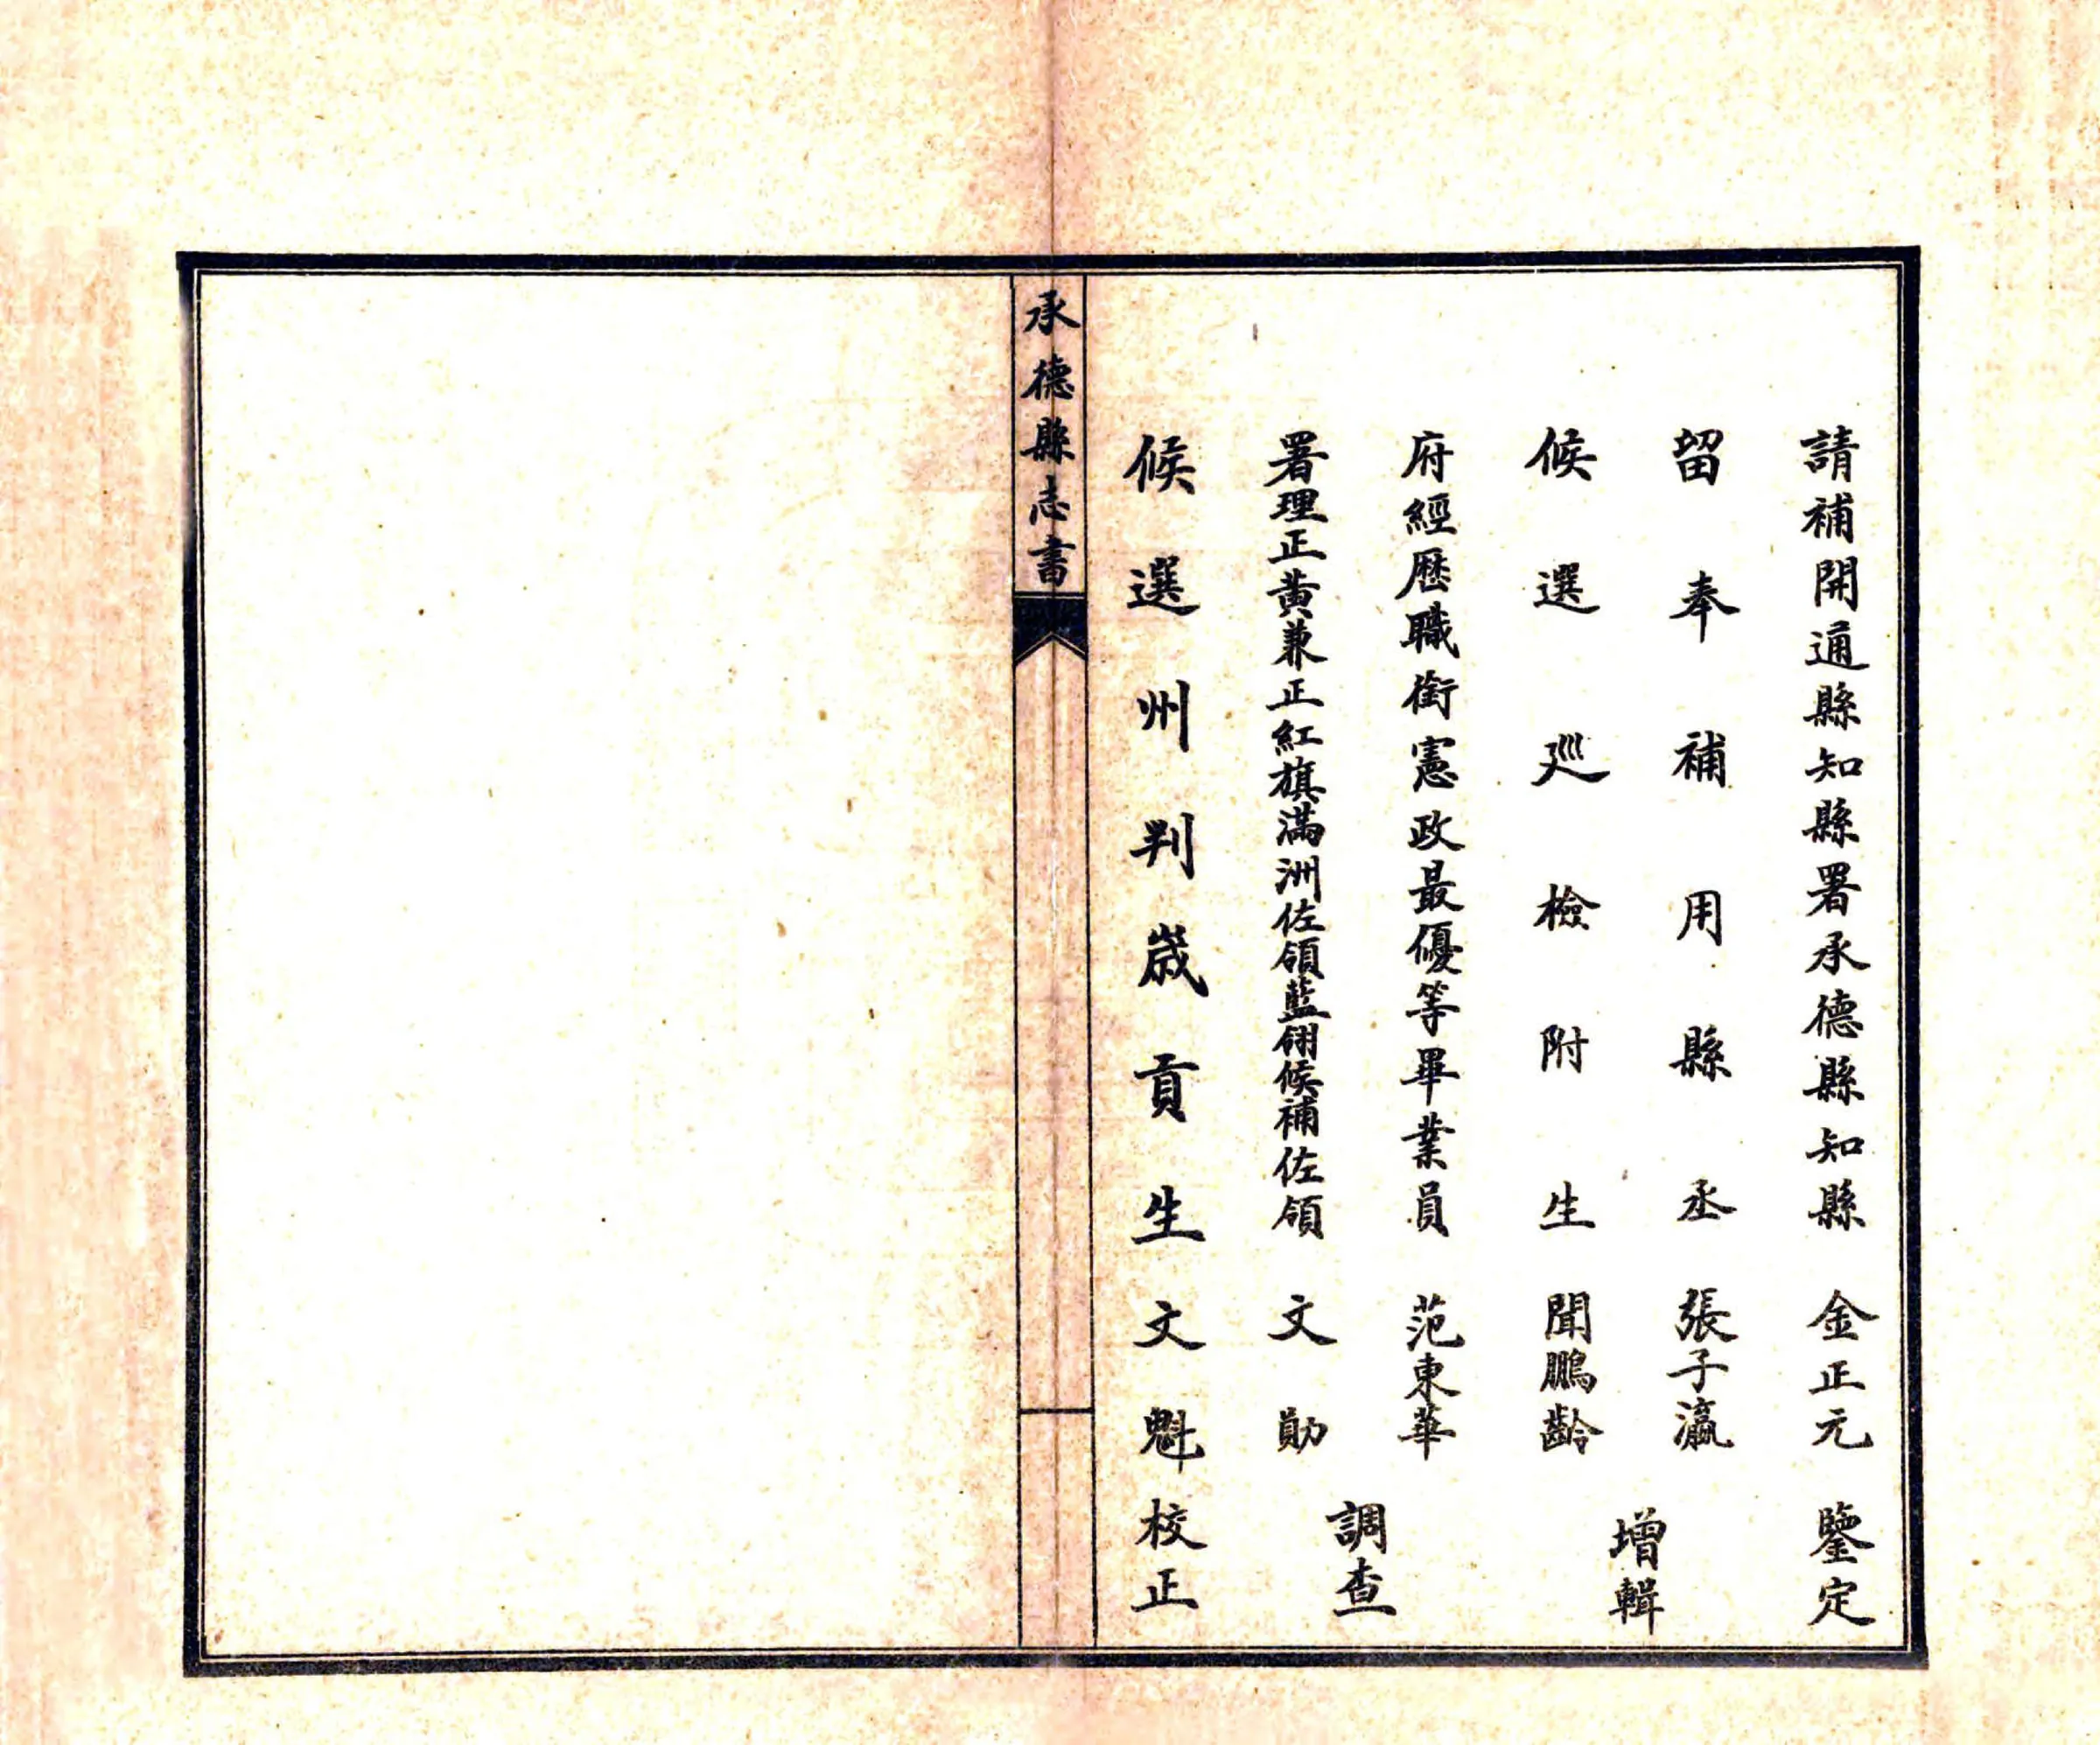 請補開通縣知縣署承德縣知縣 金正元 鑒定
留奉補用縣丞 張子瀛
候選巡檢附生 聞鵬齡
增輯
府經歷職銜憲政最優等畢業員 范東華
署理正黃兼正紅旗滿洲佐領藍翎候補佐領 文勛
調查
候選州判歲貢生 文魁 校正
承德縣志書